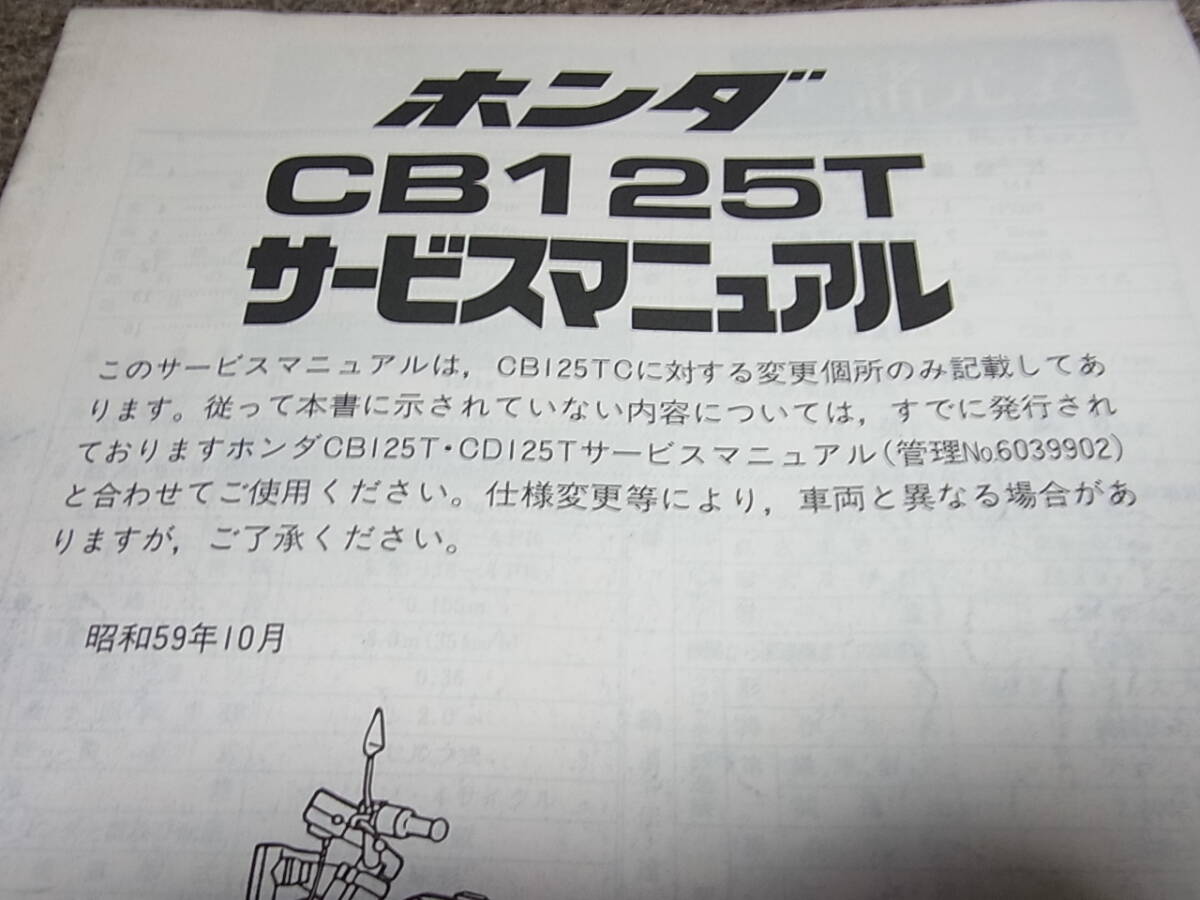 ホンダ
CB125T
サービスマニュアル
このサービスマニュアルは，CB125TCに対する変更個所のみ記載してあ
ります。従って本書に示されていない内容については，すでに発行され
ておりますホンダCB125T・CD125Tサービスマニュアル(管理No.6039902)
と合わせてご使用ください。仕様変更等により，車両と異なる場合があ
りますが，ご了承ください。
昭和59年10月